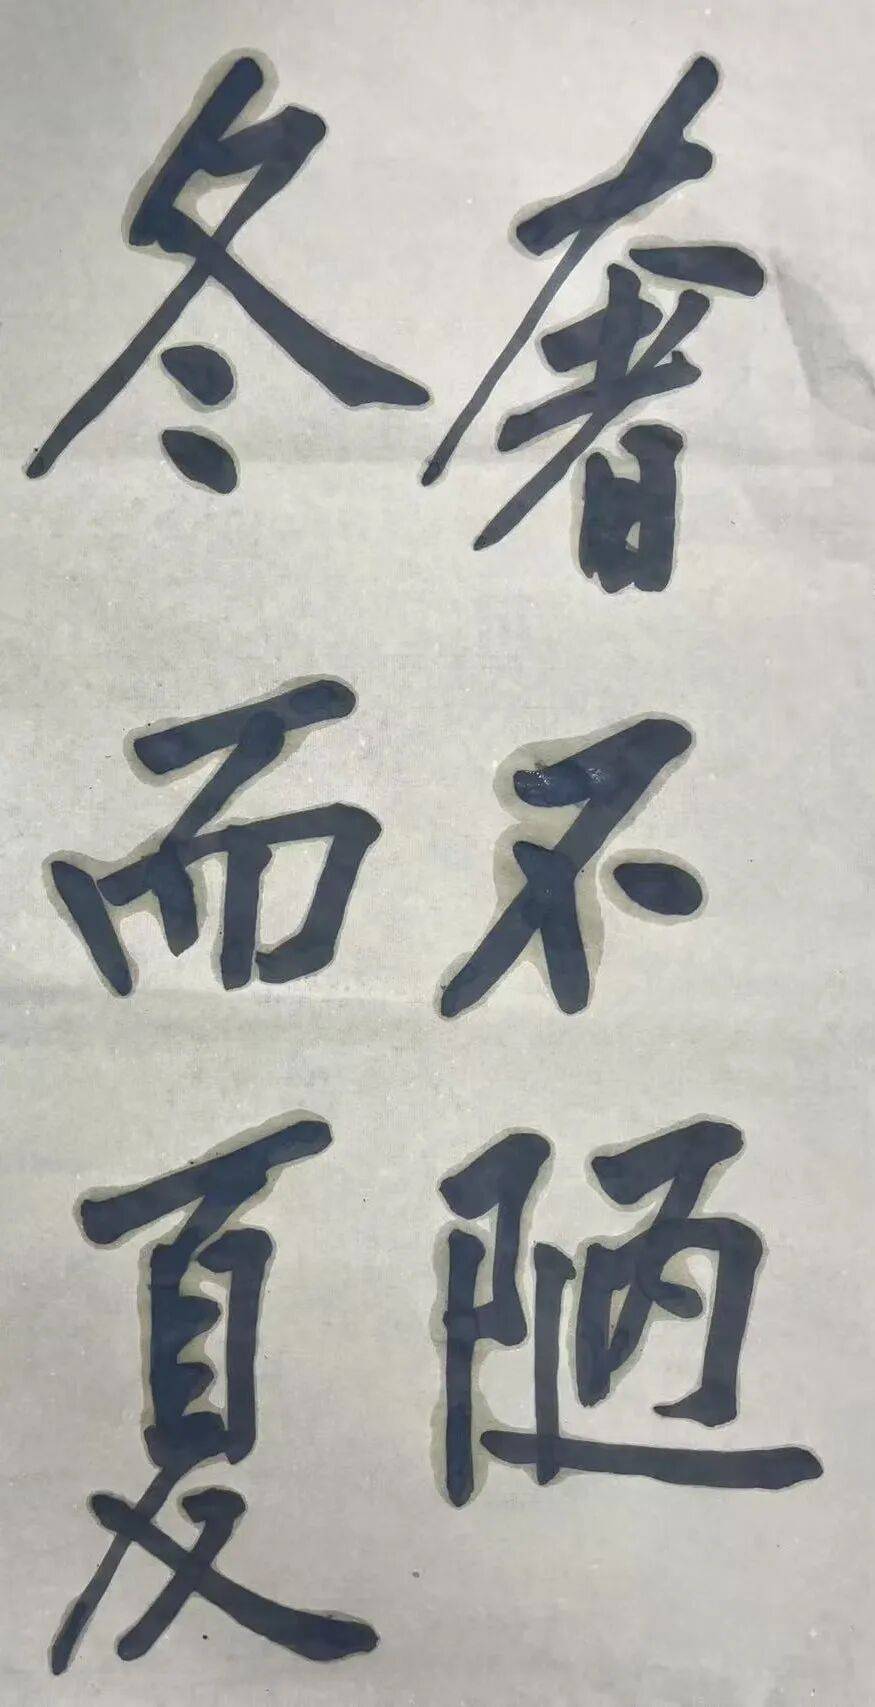 奢不陋
冬而夏